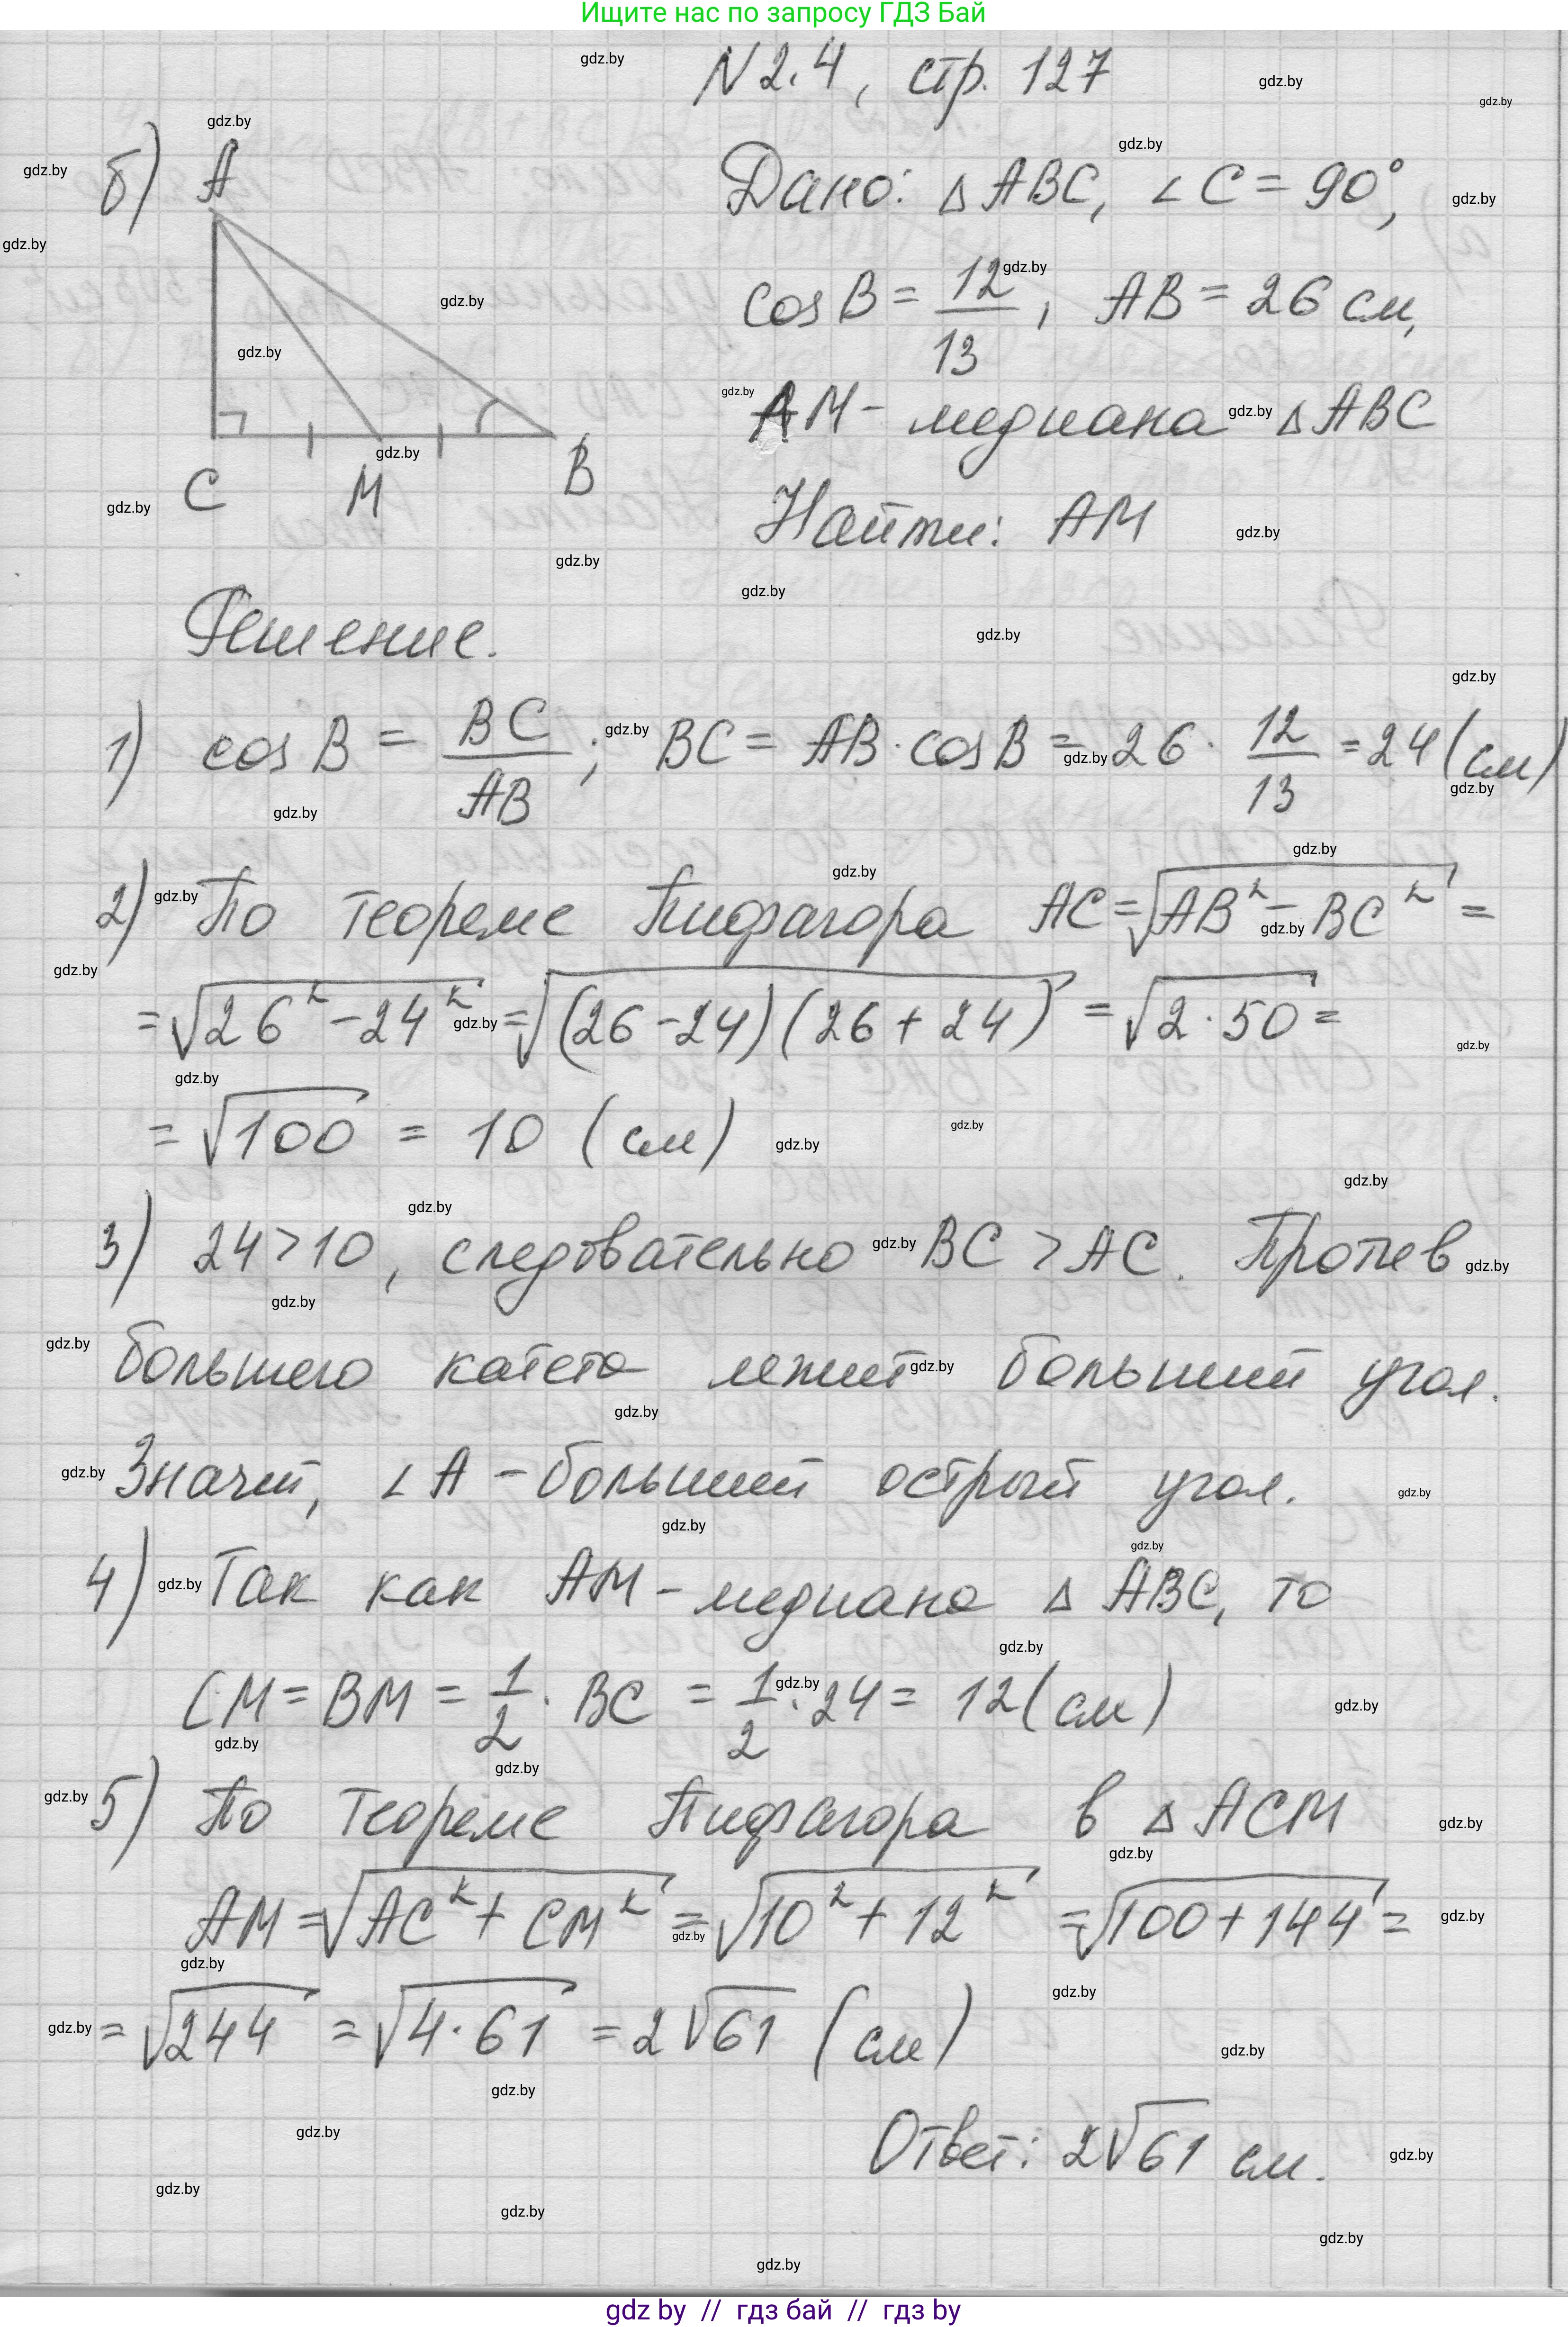 Ищите нас по запросу ГДЗ Бай
N 2.4, стр. 127
б)
A
C M B
Дано: △ABC, ∠C = 90°,
cos B = 12/13, AB = 26 см,
AM - медиана △ABC
Найти: AM
Решение.
1) cos B = BC/AB; BC = AB · cos B = 26 · 12/13 = 24 (см)
2) По теореме Пифагора AC = √(AB² - BC²) =
= √(26² - 24²) = √((26 - 24)(26 + 24)) = √(2 · 50) =
= √100 = 10 (см)
3) 24 > 10, следовательно BC > AC. Против
большего катета лежит больший угол.
Значит, ∠A - больший острый угол.
4) Так как AM - медиана △ABC, то
CM = BM = 1/2 · BC = 1/2 · 24 = 12 (см)
5) По теореме Пифагора в △ACM
AM = √(AC² + CM²) = √(10² + 12²) = √(100 + 144) =
= √244 = √(4 · 61) = 2√61 (см)
Ответ: 2√61 см.
gdz.by
gdz by // гдз бай // гдз by